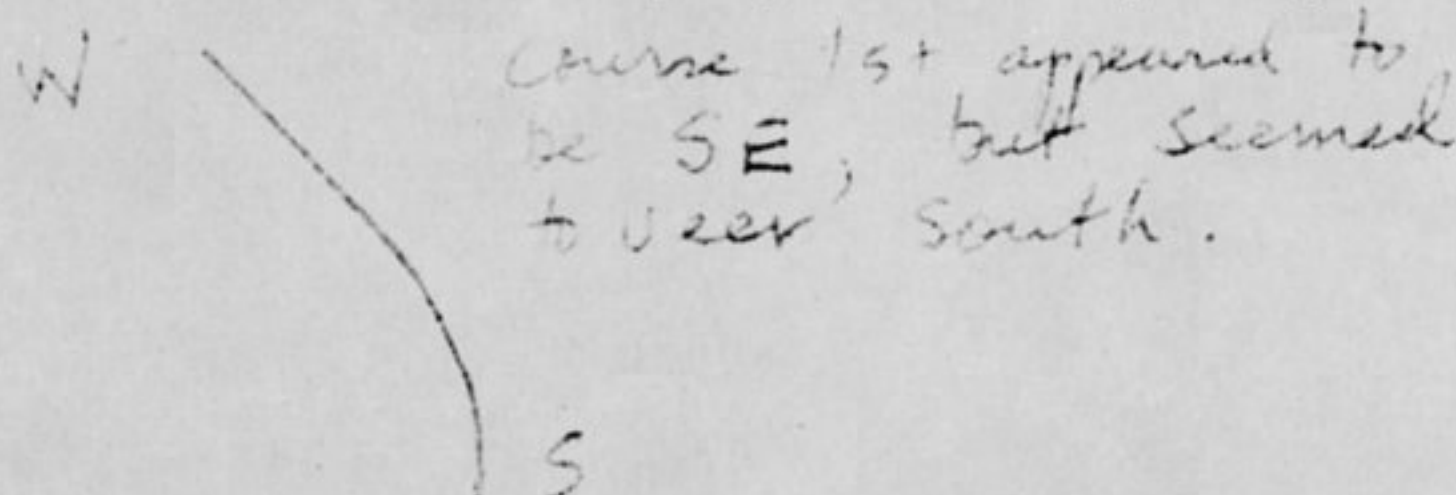 W
Course 1st appeared to
be SE, but seemed
to veer south.
S